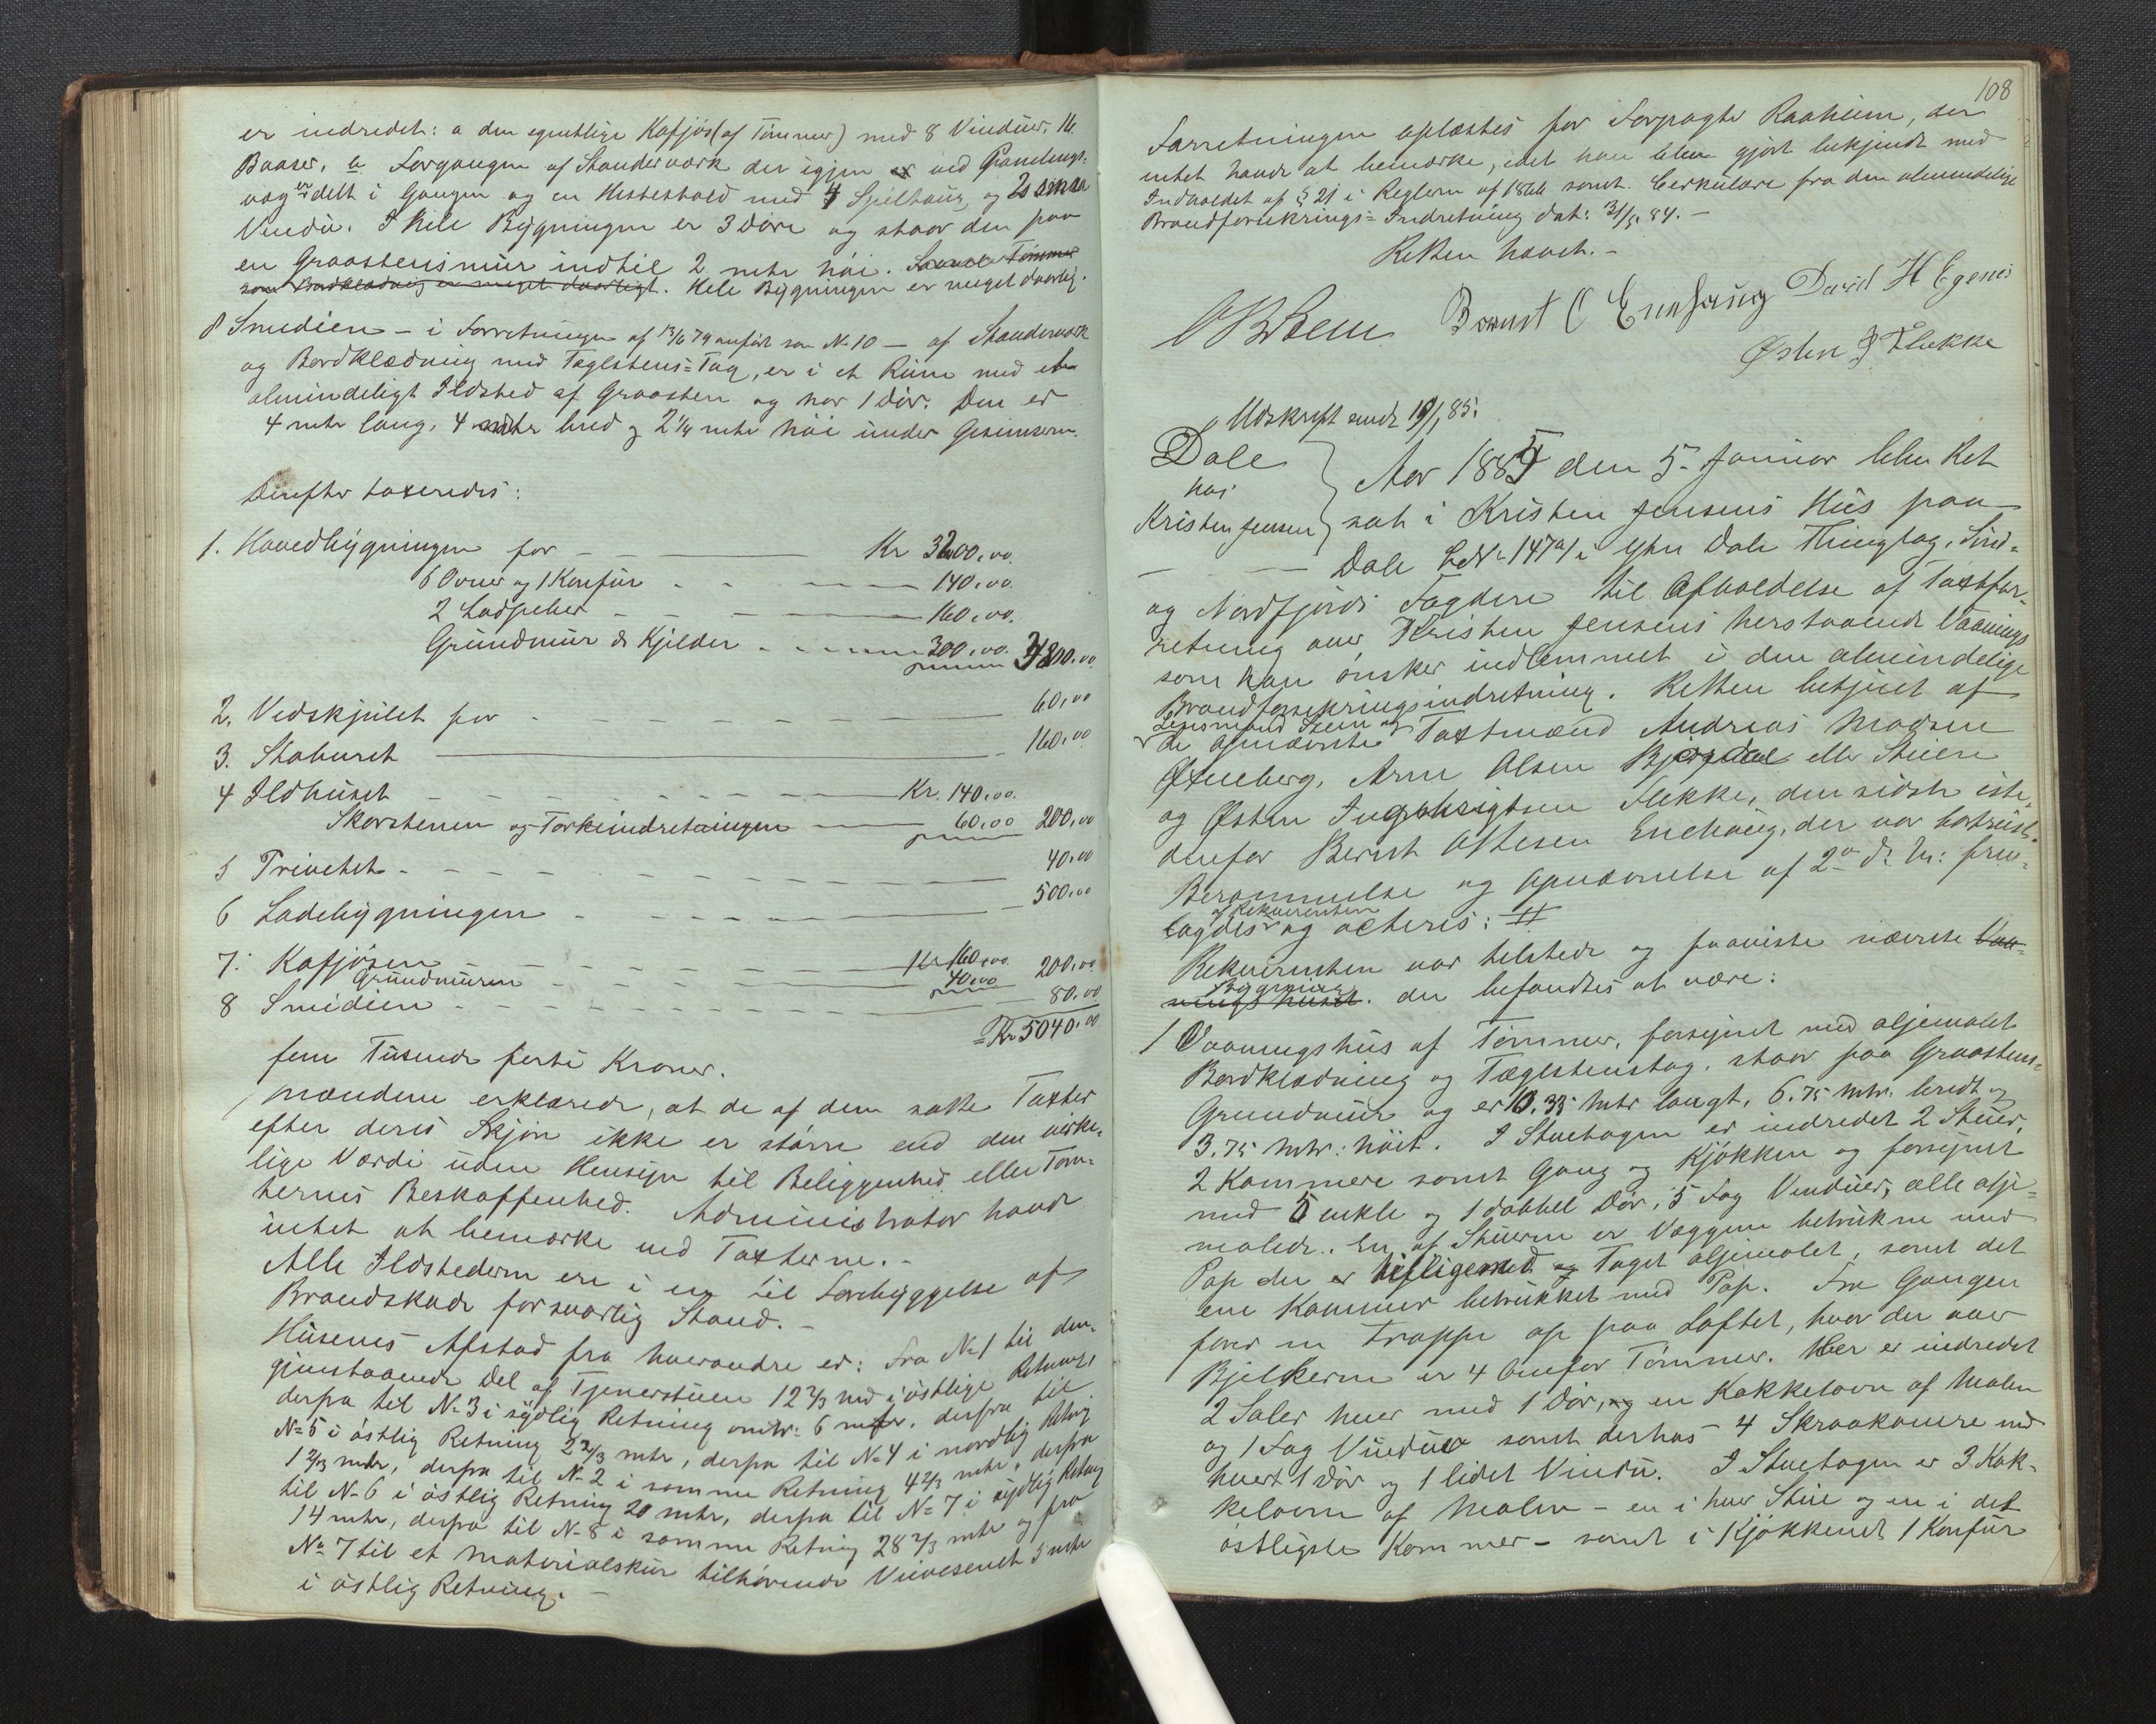 er indredet: a den egentlige Kofjøs (af Tømmer) med 8 Vinduer, 16
Baaser, b Forgangen af Standerværk der igjen ved Panelings-
væg er delt i Gangen og en Hestestald med 4 Spiltoug og
Vindu. I hele Bygningen er 3 Døre og staar den paa
en Graastensmur indtil 2 mtr høi. Saavel Tømmer
som Bordklædning er meget daarligt. Hele Bygningen er meget daarlig.
8 Smedien - i Forretningen af 13/6 79 anført som No 10 - af Standerværk
og Bordklædning med Taglstens-Tag, er i et Rum med et
almindeligt Ildsted af Graasten og har 1 Dør. Den er
4 mtr lang, 4 mtr bred og 2 1/4 mtr høi under Gesimsen.
Derefter taxeredes:
1. Hovedbygningen for - - Kr 3200,00.
6 Ovner og 1 Komfur - - 140,00.
2 Ladpiber - - 160,00.
Grundmur & Kjelder - - 300,00. 3800,00.
2. Vedskjulet for - - 60,00
3. Staburet - 160,00
4 Ildhuset - - Kr. 140,00.
Skorstenen og Tørkeindretningen - 60,00 200,00
5 Privetet - - 40,00
6 Ladebygningen - - 500,00
7. Kofjøsen - - Kr 160,00.
Grundmuren - - 40,00 200,00
8 Smedien - - 80,00
= Kr 5040,00
fem Tusende førti Kroner.
Mændene erklærede, at de af dem satte Taxter
efter deres Skjøn ikke er større end den virke-
lige Værdi uden Hensyn til Beliggenhed eller Tom-
ternes Beskaffenhed. Administrator havde
intet at bemærke ved Taxterne. -
Alle Ildstederne ere i en til Forebyggelse af
Brandskade forsvarlig Stand. -
Husenes Afstad fra hverandre er: Fra No 1 til den
gjenstaaende Del af Tjenerstuen 12 2/3 mtr i østlige Retning,
derfra til No 3 i sydlig Retning omtr: 6 mtr, derfra til
No 5 i østlig Retning 2 2/3 mtr, derfra til No 4 i nordlig Retning
1 2/3 mtr, derfra til No 2 i samme Retning 4 2/3 mtr, derfra
til No 6 i østlig Retning 20 mtr, derfra til No 7 i sydlig Retning
14 mtr, derfra til No 8 i samme Retning 28 2/3 mtr og fra
No 7 til et Materialskur tilhørende Veivæsenet 5 mtr
i østlig Retning. -
108
Forretningen oplæstes for Forpagter Raaheim, der
intet havde at bemærke, idet han blev gjort bekjendt med
Indholdet af § 21 i Reglerne af 1866 samt Cerkulære fra den almindelige
Brandforsikrings-Indretning dat: 31/5 84. -
Retten hævet. -
Bernt O Enehaug David H Egenes
Østen I Flekke
Udskrift sendt 19/1 85.
Dale
hos
Kristen Jensen
Aar 1885 den 5. Januar blev Ret
sat i Kristen Jensens Hus paa
Dale LNo 147a i Ytre Dale Thinglag, Sønd-
og Nordfjords Fogderi til Afholdelse af Taxtfor-
retning over Kristen Jensens herstaaende Vaanings
som han ønsker indlemmet i den almindelige
Brandforsikringsindretning. Retten betjent af
Lensmand Steen og
de opnævnte Taxtmænd Andreas Madsen
Øxneberg, Arne Olsen Bjordal eller Steien
og Østen Ingebrigtsen Flekke, den sidste iste-
denfor Bernt Ottesen Enehaug, der var bortreist.
Berammelse og Opnævnelse af 2den ds M: frem-
af Rekvirenten
lagdes og acteres: #
Rekvirenten var tilstede og paaviste nævnte Vaa-
Bygning
nings huset. der befandtes at være:
1 Vaaningshus af Tømmer, forsynet med oljemalet
Bordklædning og Tæglstenstag, staar paa Graastens-
Grundmur og er 10.35 Mtr langt, 6.75 Mtr. bredt og
3.75 Mtr: høit. I Stuetagen er indredet 2 Stuer,
2 Kammere samt Gang og Kjøkken og forsynet
med 5 enkle og 1 dobbel Dør, 5 Fag Vinduer, alle olje-
malede. En af Stuerne er Væggene betrukne med
Pap der er tilligemed Taget oljemalet, samt det
ene Kammer betrukket med Pap. Fra Gangen
fører en Trappe op paa Loftet, hvor der over
Bjelkerne er 4 Omfar Tømmer. Her er indredet
2 Saler hver med 1 Dør, en Kakkelovn af Malm
og 1 Fag Vinduer samt derhos 4 Skraakovere med
hvert 1 Dør og 1 lidet Vindu. I Stuetagen er 3 Kak-
kelovne af Malm - en i hver Stue og en i det
østligste Kammer - samt i Kjøkkenet 1 Komfur